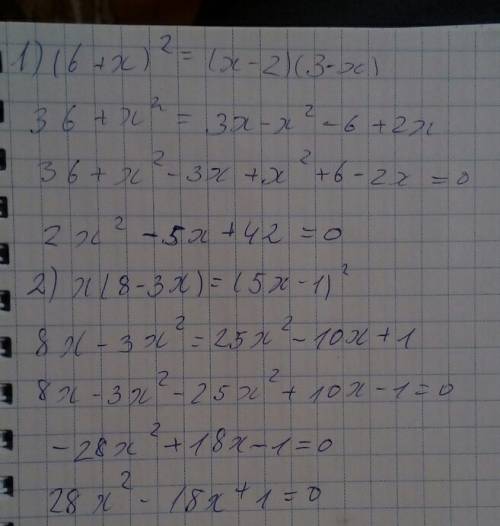 1) (6 + x)² = (x - 2)(3 - x)
36 + x² = 3x - x² - 6 + 2x
36 + x² - 3x + x² + 6 - 2x = 0
2x² - 5x + 42 = 0
2) x(8 - 3x) = (5x - 1)²
8x - 3x² = 25x² - 10x + 1
8x - 3x² - 25x² + 10x - 1 = 0
-28x² + 18x - 1 = 0
28x² - 18x + 1 = 0